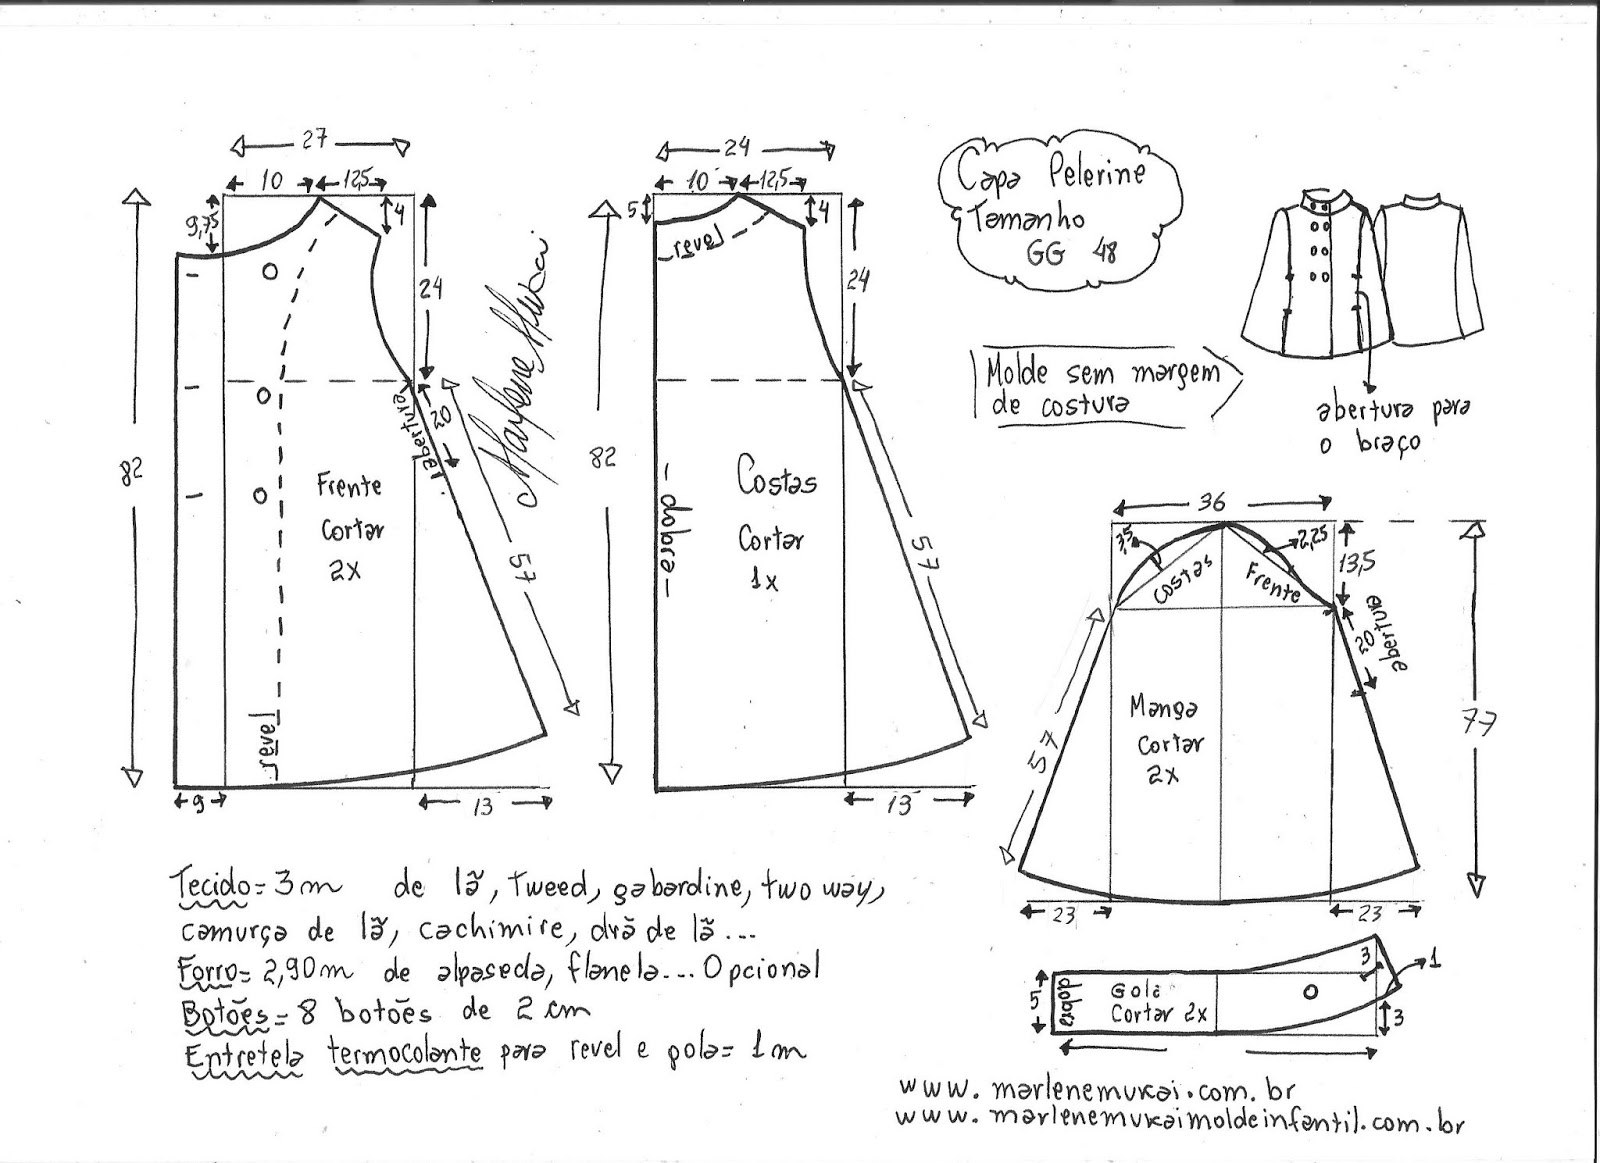 27
10
12,5
9,75
4
24
82
abertura
20
57
Frente
Cortar
2x
revel
9
13
Marlene Mukai
24
10
12,5
5
4
revel
24
82
dobra
Costas
Cortar
1x
57
13
Capa Pelerine
Tamanho
GG 48
Molde sem margem
de costura
abertura para
o braço
36
3,5
2,25
13,5
Costas
Frente
abertura
20
Manga
Cortar
2x
57
77
23
23
5
dobra
Gola
Cortar 2x
3
1
3
Tecido= 3m de lã, tweed, gabardine, two way,
camurça de lã, cachimire, drã de lã...
Forro= 2,90m de alpaseda, flanela... Opcional
Botões= 8 botões de 2 cm
Entretela termocolante para revel e gola= 1m
www.marlenemukai.com.br
www.marlenemukaimoldeinfantil.com.br